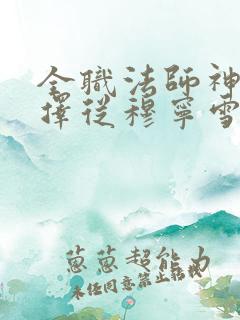 全職法師神
擇從穆寧雪
蔥蔥超能力
未經同意禁止轉載